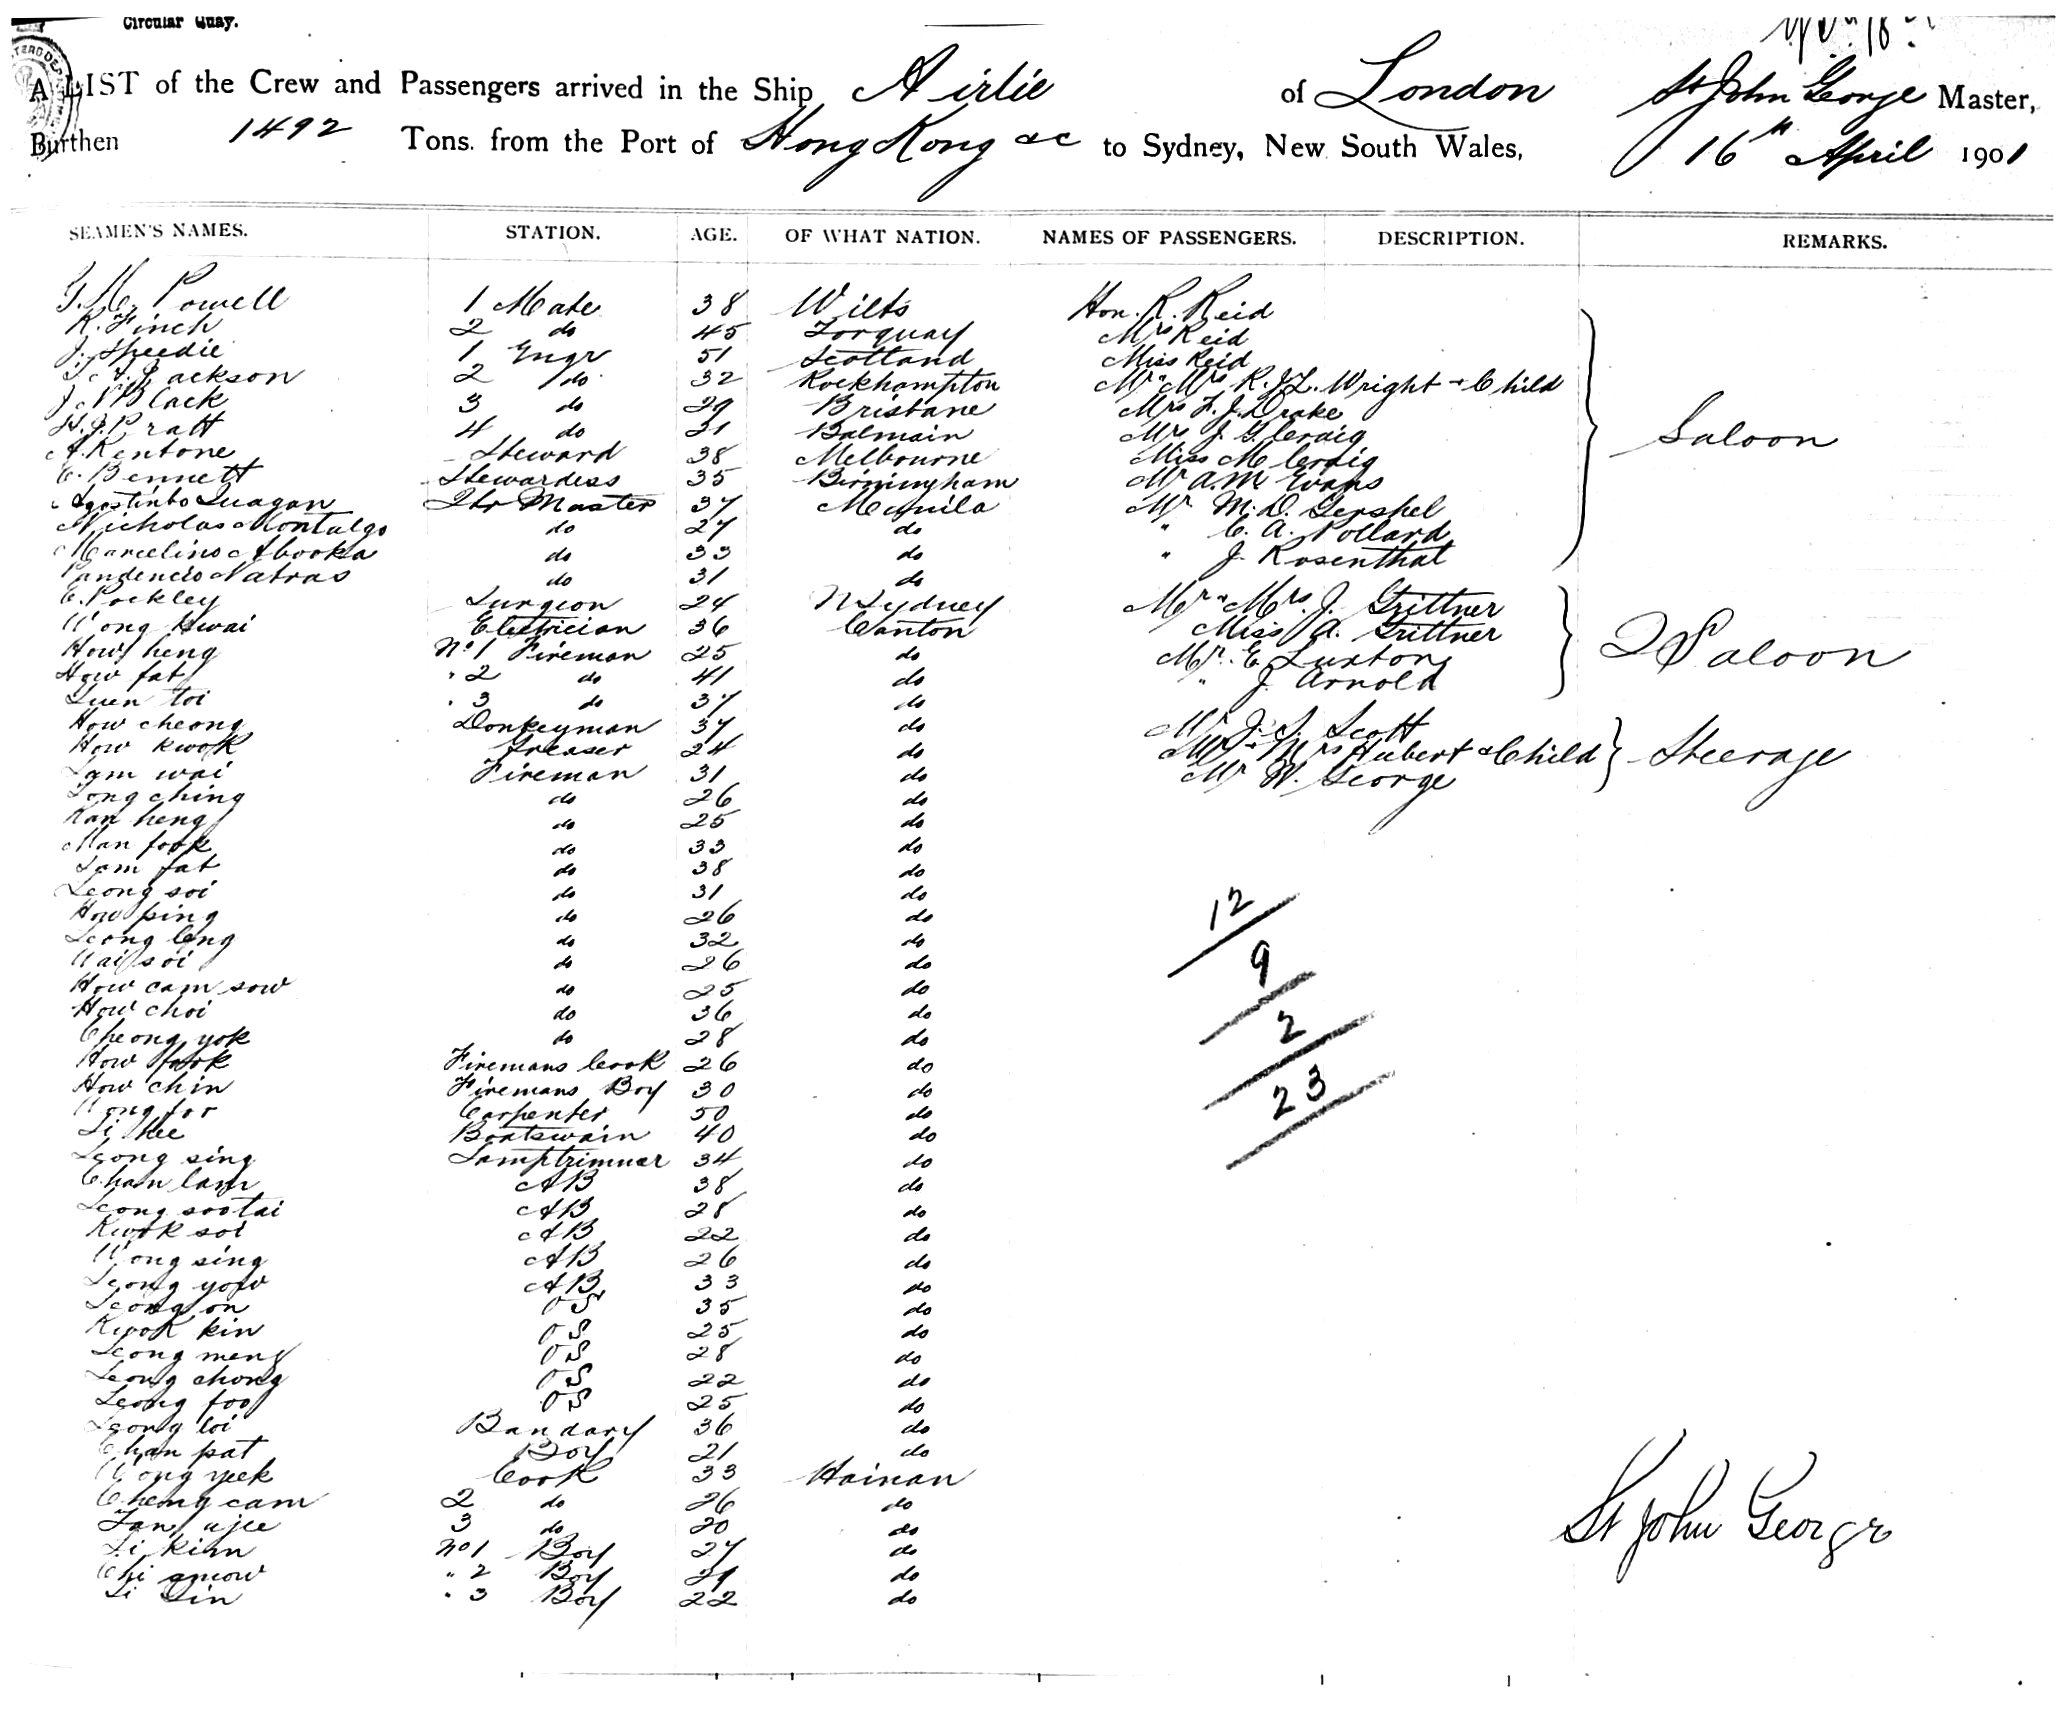 Circular Quay.
A LIST of the Crew and Passengers arrived in the Ship Airlie of London St John George Master,
Burthen 1492 Tons. from the Port of Hong Kong &c to Sydney, New South Wales, 16th April 1901
SEAMEN'S NAMES. STATION. AGE. OF WHAT NATION. NAMES OF PASSENGERS. DESCRIPTION. REMARKS.
Powell 1 Mate 38 Wilts Hon. R. Reid
R. Finch 2 do 45 Torquay Mrs Reid
J. Speedie 1 Engr 51 Scotland Miss Reid
Jackson 2 do 32 Rockhampton Mr & Mrs R. J. L. Wright & Child
Black 3 do 29 Brisbane Mrs F. J. Drake
H. J. Pratt 4 do 21 Balmain Mrs J. G. Craig
A Kentone Steward 38 Melbourne Miss M Craig Saloon
E. Bennett Stewardess 35 Birmingham Mr A. M. Evans
Agostinto Quagan Qtr Master 37 Manila Mr M. D. Gershel
Nicholas Montalgo do 27 do " C. A. Pollard
Marcelino Abooka do 33 do " J. Rosenthal
Natras do 31 do
E. Pockley Surgeon 24 N Sydney Mr & Mrs. J. Grittner
Wong Hwai Electrician 36 Canton Miss A. Grittner
How heng No 1 Fireman 25 do Mr. E. Luxton 2 Saloon
How fat " 2 do 41 do " J. Arnold
Luen toi " 3 do 37 do
How cheong Donkeyman 37 do Mr J. S. Scott
How Kwok Greaser 24 do Mr & Mrs Hubert & Child Steerage
Lam wai Fireman 31 do Mr W. George
Tong ching do 26 do
Kan heng do 25 do
Man fook do 33 do
Lam fat do 38 do
Leong soi do 31 do
How ping do 26 do 12
Leong leng do 32 do
Wai soi do 26 do 9
How cam sow do 25 do
How choi do 36 do 2
Cheong yok do 28 do
How fook Firemans Cook 26 do 23
How chin Firemans Boy 30 do
Wong for Carpenter 50 do
Li hee Boatswain 40 do
Leong sing Lamptrimmer 34 do
Chan lam AB 38 do
Leong sootai AB 28 do
Kwok soi AB 22 do
Wong sing AB 26 do
Leong yow AB 33 do
Leong on OS 35 do
Kwok kin OS 25 do
Leong meng OS 28 do
Leong chong OS 22 do
Leong foo OS 25 do
Leong loi Bandary 36 do
Chan pat Boy 21 do
Wong yeek Cook 33 Hainan
Cheng cam 2 do 26 do
Tan ajee 3 do 20 do St John George
Li kim No 1 Boy 27 do
Chi amow " 2 Boy 29 do
Li Sin " 3 Boy 22 do